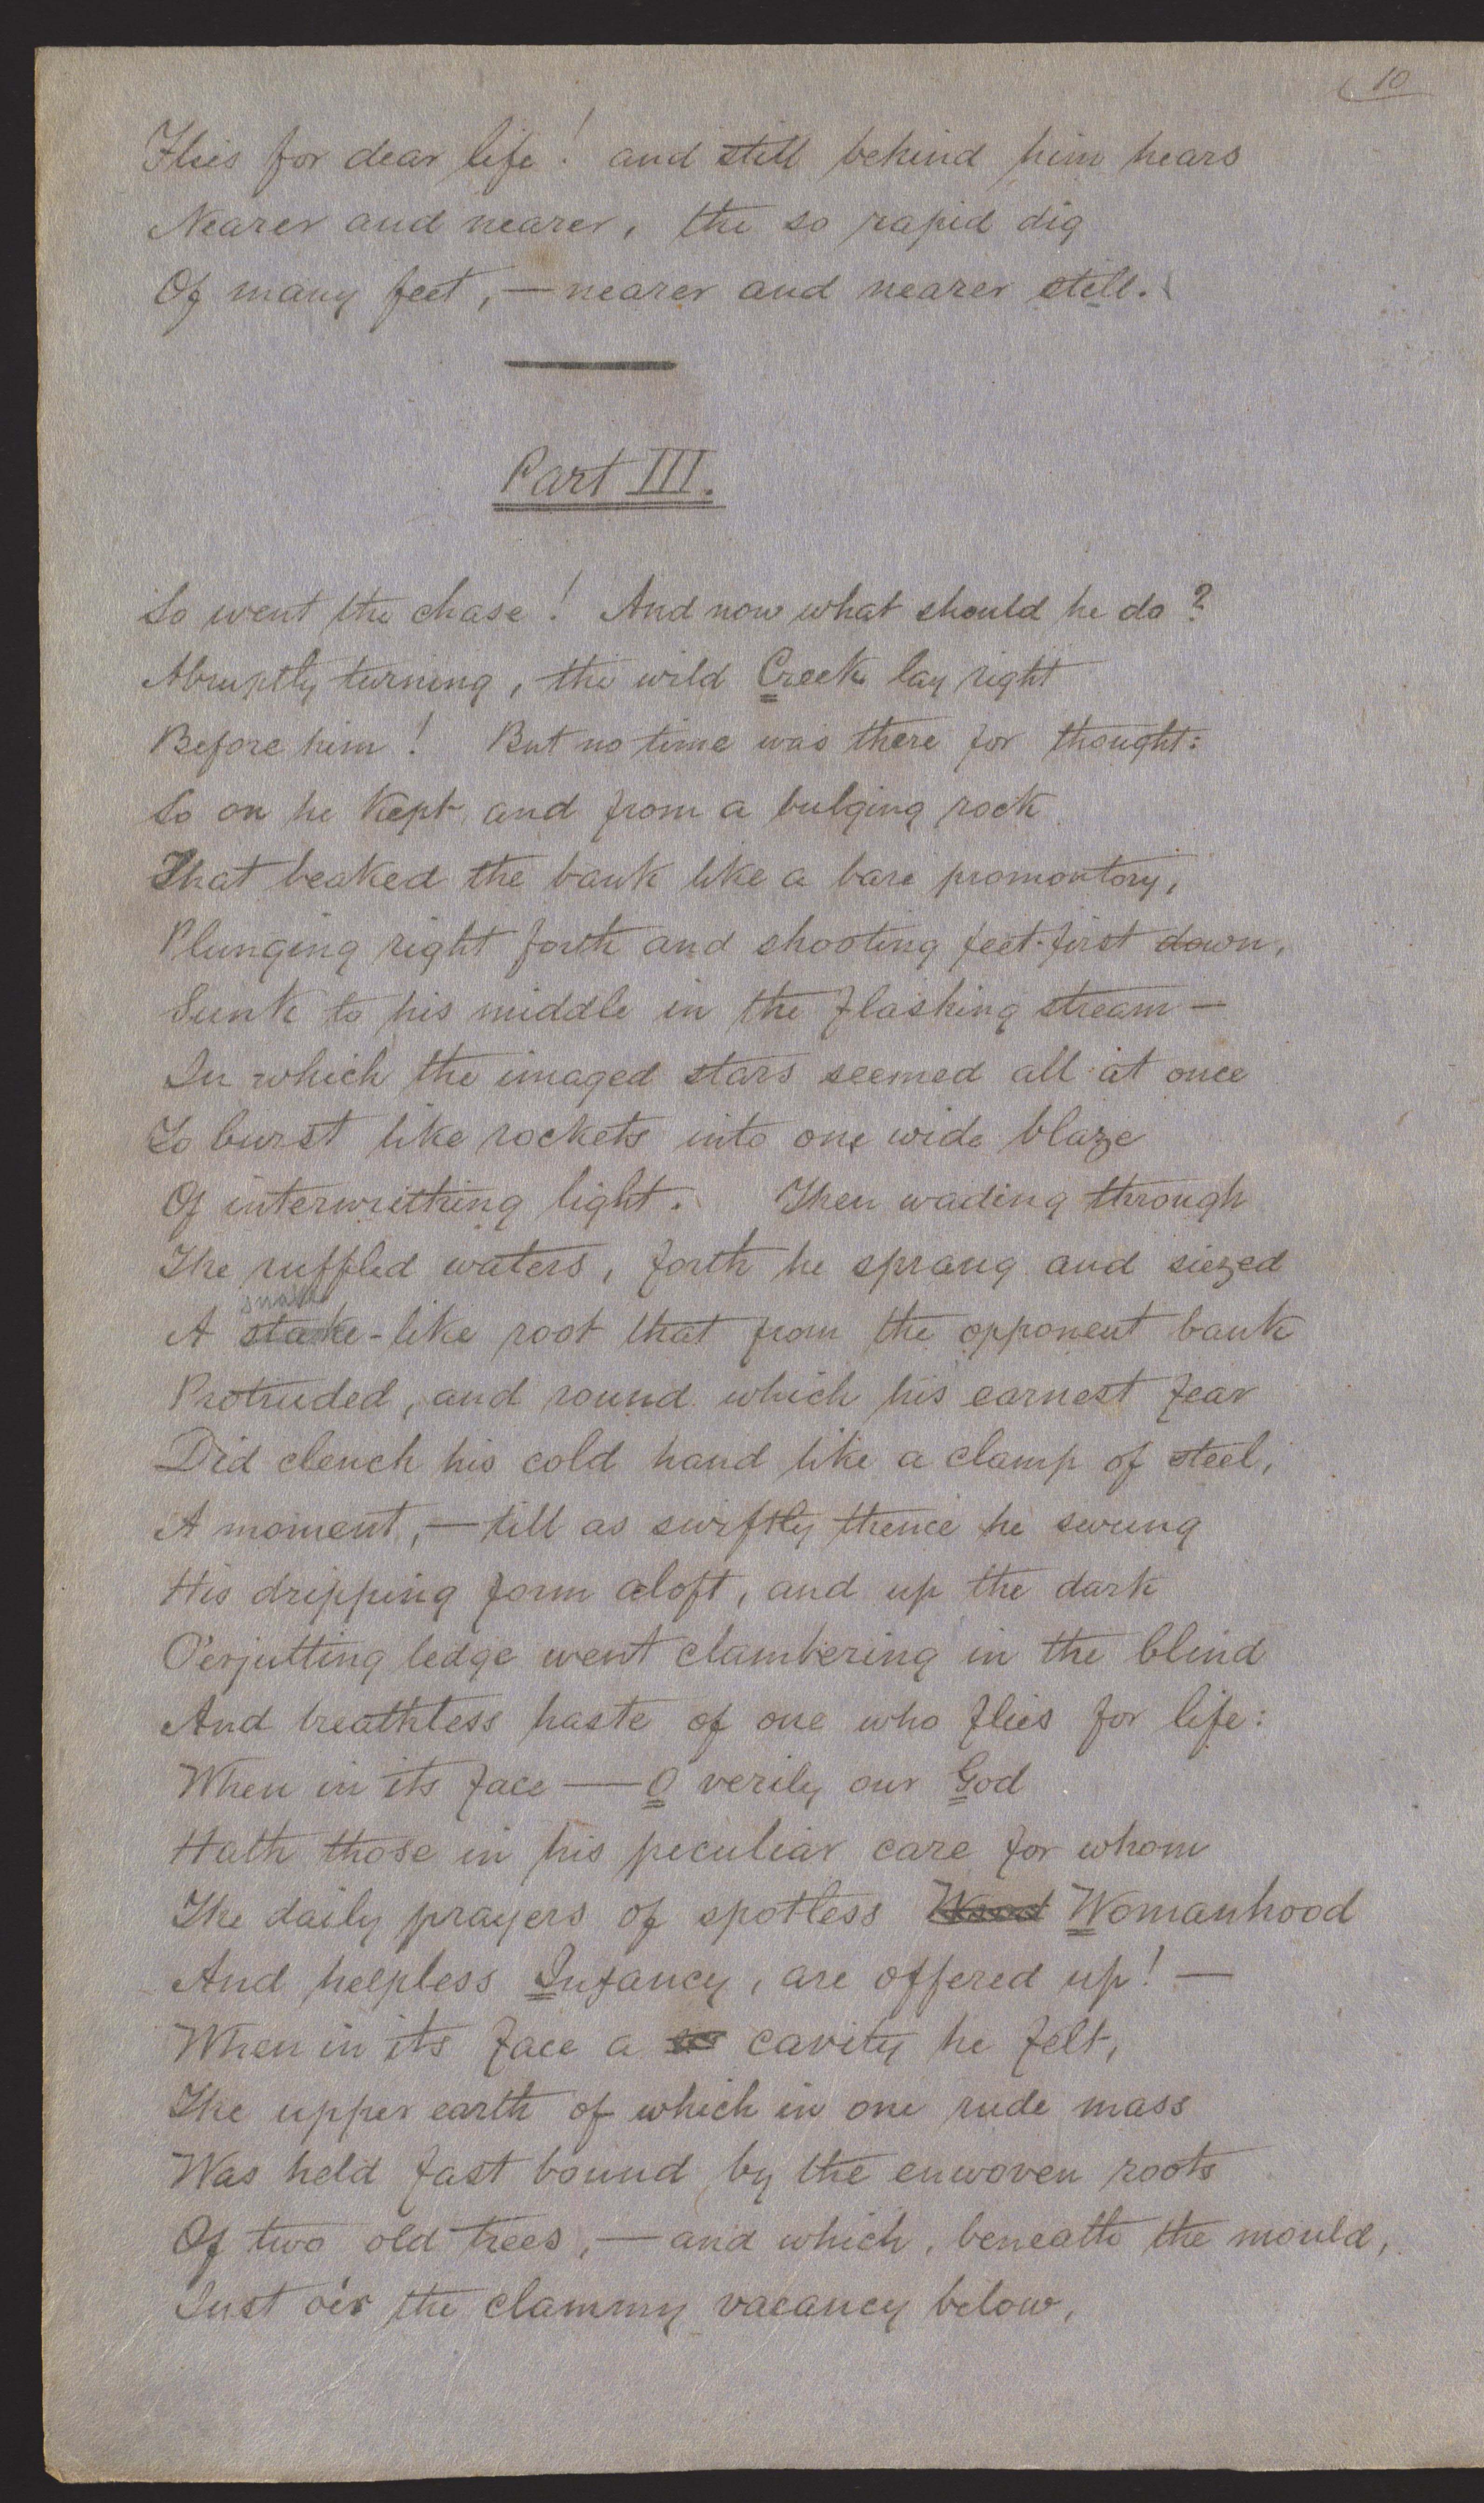 10
Flies for dear life! and still behind him hears
Nearer and nearer, the so rapid dig
Of many feet, — nearer and nearer still.
Part III.
So went the chase! And now what should he do?
Abruptly turning, the wild Creek lay right
Before him! But no time was there for thought:
So on he kept, and from a bulging rock
That beaked the bank like a bare promontory,
Plunging right forth and shooting feet-first down,
Sunk to his middle in the flashing stream —
In which the imaged stars seemed all at once
To burst like rockets into one wide blaze
Of interwrithing light. Then wading through
The ruffled waters, forth he sprang and siezed
snake
A stake-like root that from the opponent bank
Protruded, and round which his earnest fear
Did clench his cold hand like a clamp of steel,
A moment, — till as swiftly thence he swung
His dripping form aloft, and up the dark
O'erjutting ledge went clambering in the blind
And breathless haste of one who flies for life:
When in its face — O verily our God
Hath those in his peculiar care for whom
The daily prayers of spotless Womanhood
And helpless Infancy, are offered up! —
When in its face a cavity he felt,
The upper earth of which in one rude mass
Was held fast bound by the enwoven roots
Of two old trees, — and which, beneath the mould,
Just o'er the clammy vacancy below,